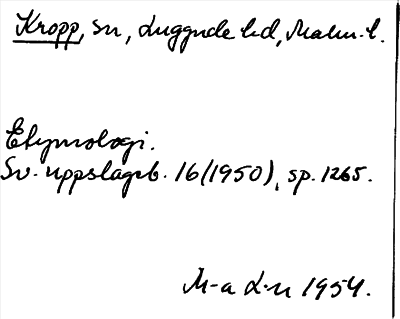 Kropp, sn, Luggude hd, Malm. l.
Etymologi.
Sv. uppslagsb. 16(1950), sp. 1265.
M-a L-n 1954.